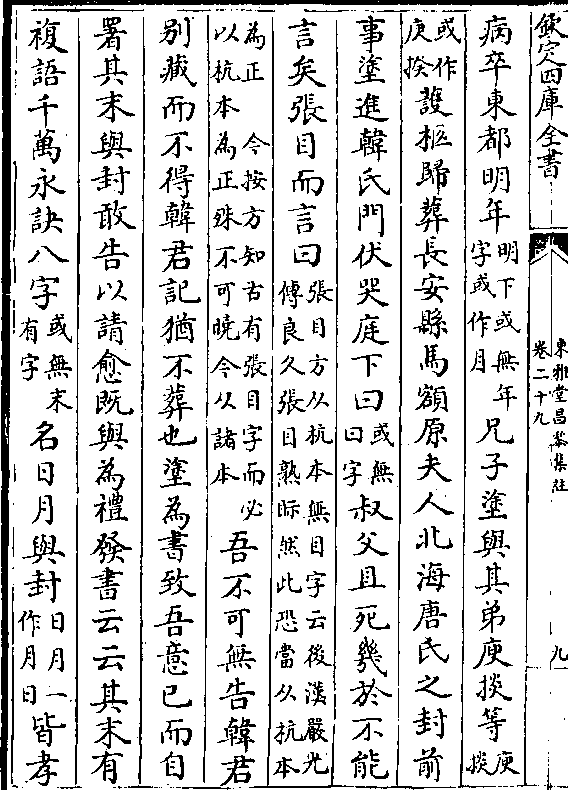 欽定四庫全書
東雅堂昌黎集註
卷二十九
九
病卒東都明年明下或無年字或作月兄子塗與其弟庾掞等庾掞
或作庚揆護柩歸葬長安縣馬額原夫人北海唐氏之封前
事塗進韓氏門伏哭庭下曰或無曰字叔父且死幾於不能
言矣張目而言曰張目方从杭本無目字云後漢嚴光傳良久張目熟眎然此恐當从杭本
為正　今按方知古有張目字而必以杭本為正殊不可曉今从諸本吾不可無告韓君
别藏而不得韓君記猶不葬也塗為書致吾意已而自
署其末與封敢告以請愈既與為禮發書云云其末有
複語千萬永訣八字或無末有字名日月與封日月一作月日皆孝